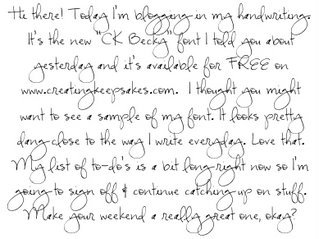 Hi there! Today I'm blogging in my handwriting.
It's the new "CK Becky" font I told you about
yesterday and it's available for FREE on
www.creatingkeepsakes.com. I thought you might
want to see a sample of my font. It looks pretty
dang close to the way I write everyday. Love that.
My list of to-do's is a bit long right now so I'm
going to sign off & continue catching up on stuff.
Make your weekend a really great one, okay?